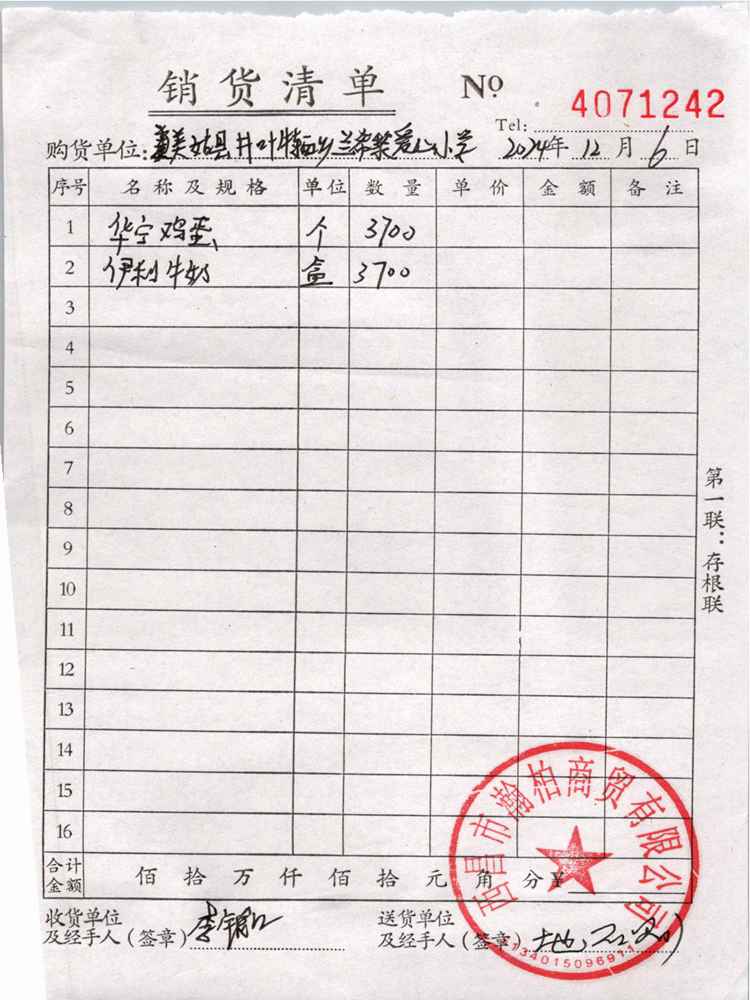 销货清单 Nº 4071242
Tel:
购货单位: 美姑县井叶特西乡 爱心小学 2014年 12月 6日
序号 名称及规格 单位 数量 单价 金额 备注
1 华宁鸡蛋 个 3700
2 伊利牛奶 盒 3700
3
4
5
6
7
8
9
10
11
12
13
14
15
16
合计金额 佰 拾 万 仟 佰 拾 元 角 分 ¥
收货单位 送货单位
及经手人(签章) 及经手人(签章)
第一联：存根联
西昌市瀚柏商贸有限公司